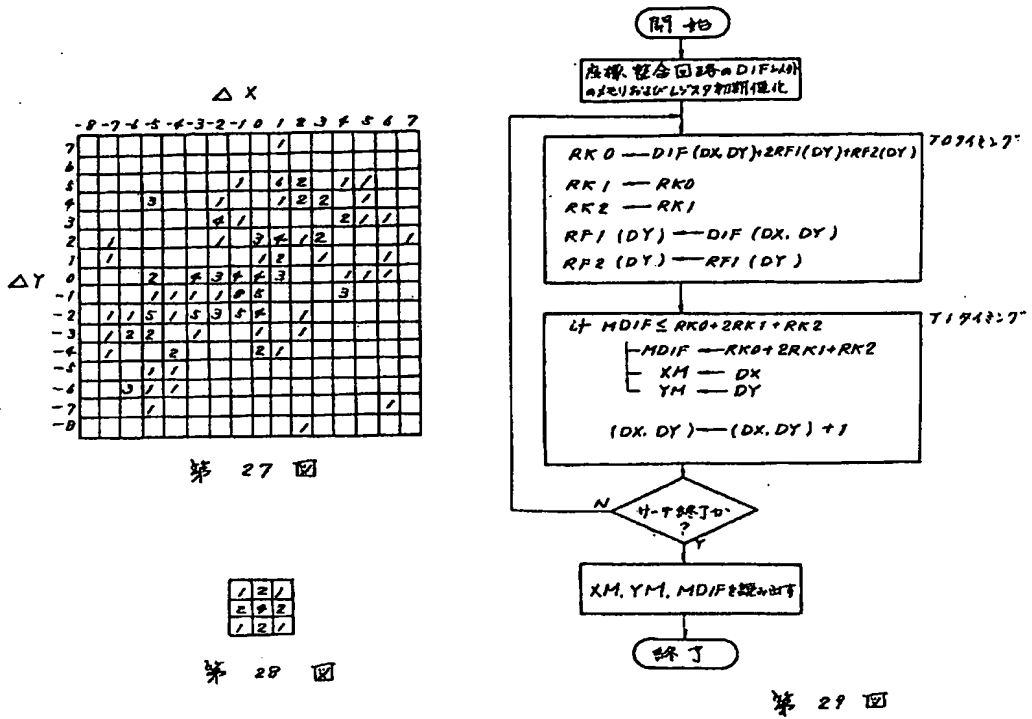 △ X
-8 -7 -6 -5 -4 -3 -2 -1 0 1 2 3 4 5 6 7
7 1
6
5 1 6 2 1 1
4 3 1 1 2 2 1 1
3 4 1 2 1 1
2 1 1 3 4 1 2 1
1 1 1 2 1 1
△Y
0 2 4 3 4 4 3 1 1 1
-1 1 1 1 1 8 5 3
-2 1 1 5 1 5 3 5 4 1
-3 1 2 2 1 1 1
-4 1 2 2 1
-5 1 1
-6 3 1 1
-7 1 1
-8 1
第 27 図
1 2 1
2 4 2
1 2 1
第 28 図
開始
座標整合回路のDIF以外
のメモリおよびレジスタ初期値化
T0タイミング
RK0 ― DIF(DX,DY)+2RF1(DY)+RF2(DY)
RK1 ― RK0
RK2 ― RK1
RF1 (DY) ― DIF (DX, DY)
RF2 (DY) ― RF1 (DY)
T1タイミング
if MDIF ≤ RK0+2RK1+RK2
MDIF ― RK0+2RK1+RK2
XM ― DX
YM ― DY
(DX, DY) ― (DX, DY) + 1
N
サーチ終了か
?
Y
XM, YM, MDIFを読み出す
終了
第 29 図